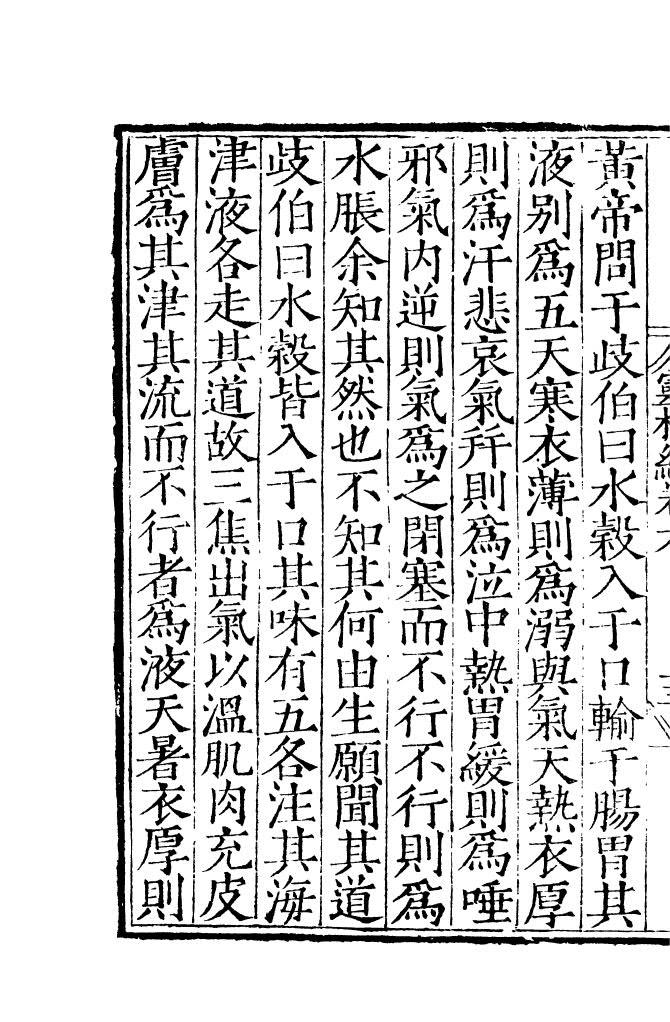 黃帝問于歧伯曰水穀入于口輸于腸胃其
液別爲五天寒衣薄則爲溺與氣天熱衣厚
則爲汗悲哀氣幷則爲泣中熱胃緩則爲唾
邪氣内逆則氣爲之閉塞而不行不行則爲
水脹余知其然也不知其何由生願聞其道
歧伯曰水穀皆入于口其味有五各注其海
津液各走其道故三焦出氣以溫肌肉充皮
膚爲其津其流而不行者爲液天暑衣厚則